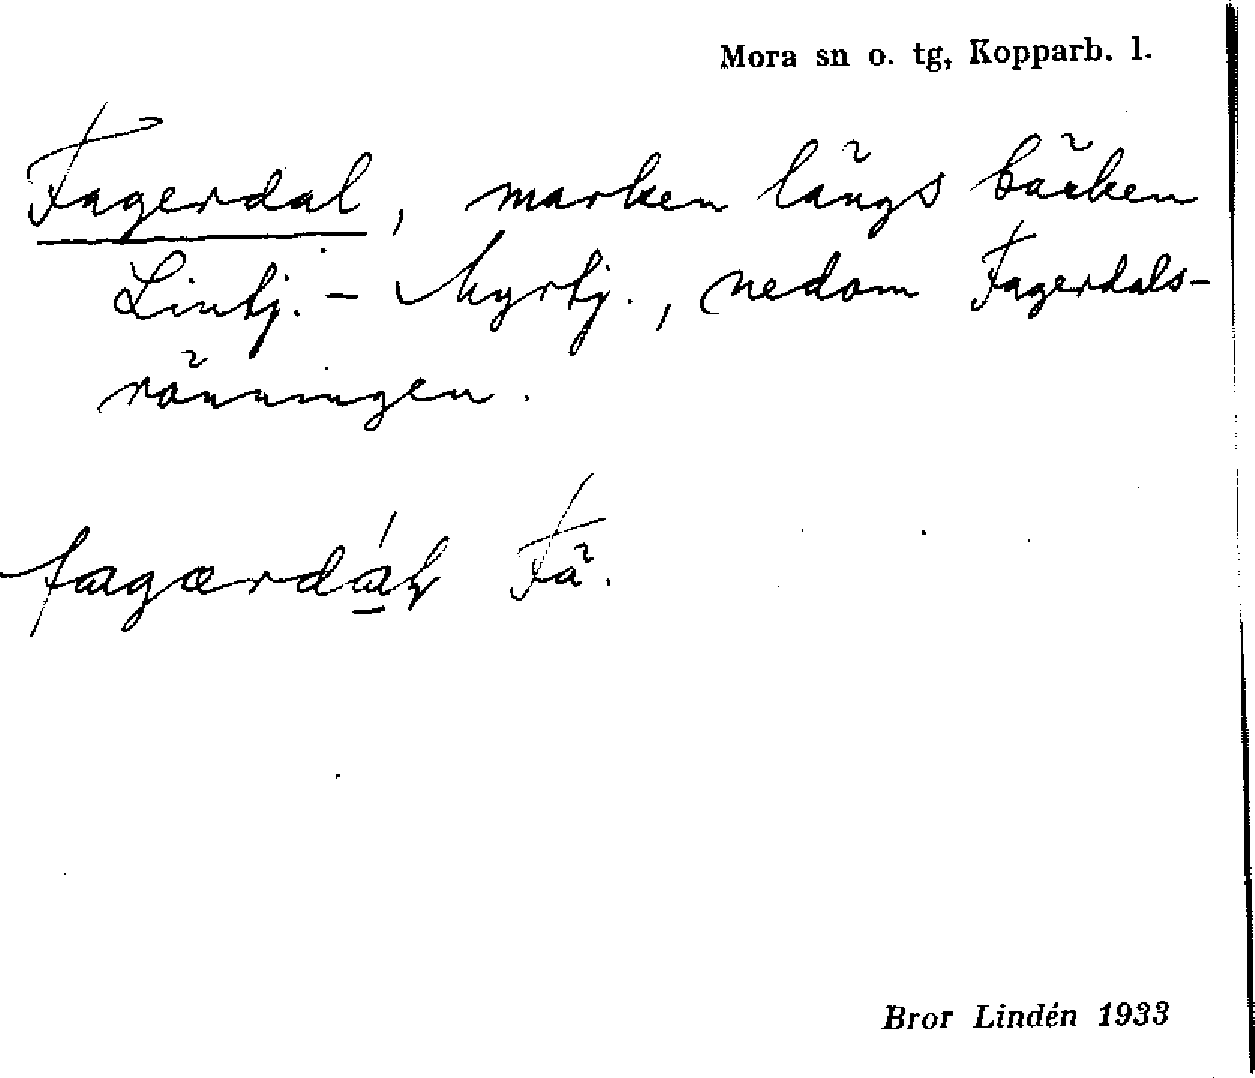 Mora sn o. tg, Kopparb. l.
Fagerdal, marken längs bäcken
Lintj. - Myrtj., nedom Fagerdals-
rönningen.
Fä.
Bror Lindén 1933